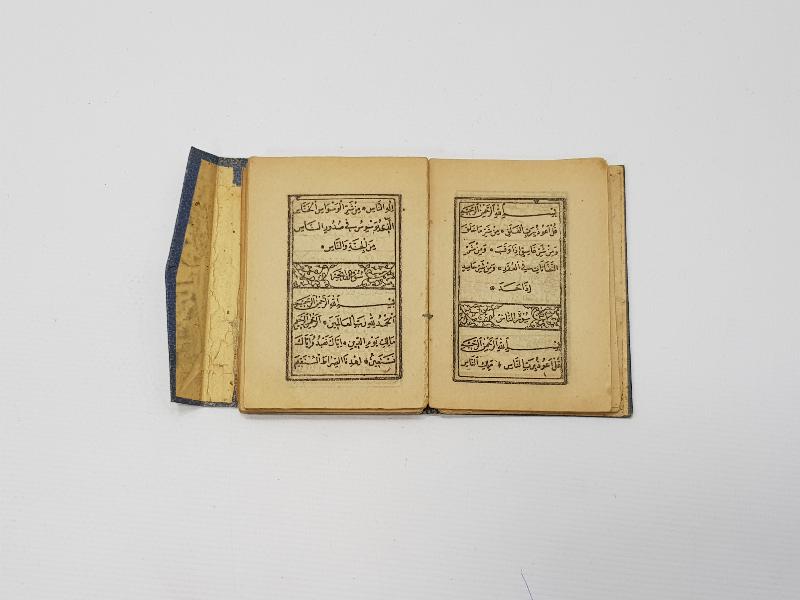 بِسْمِ اللهِ الرَّحْمٰنِ الرَّحِيمِ
قُلْ اَعُوذُ بِرَبِّ الْفَلَقِ * مِنْ شَرِّ مَا خَلَقَ
وَمِنْ شَرِّ غَاسِقٍ اِذَا وَقَبَ * وَمِنْ شَرِّ
النَّفَّاثَاتِ فِي الْعُقَدِ * وَمِنْ شَرِّ حَاسِدٍ
اِذَا حَسَدَ *
سُورَةُ النَّاسِ
بِسْمِ اللهِ الرَّحْمٰنِ الرَّحِيمِ
قُلْ اَعُوذُ بِرَبِّ النَّاسِ * مَلِكِ النَّاسِ
اِلٰهِ النَّاسِ * مِنْ شَرِّ الْوَسْوَاسِ الْخَنَّاسِ
الَّذِي يُوَسْوِسُ فِي صُدُورِ النَّاسِ
مِنَ الْجِنَّةِ وَالنَّاسِ *
سُورَةُ الْفَاتِحَةِ
بِسْمِ اللهِ الرَّحْمٰنِ الرَّحِيمِ
اَلْحَمْدُ لِلّٰهِ رَبِّ الْعَالَمِينَ * اَلرَّحْمٰنِ الرَّحِيمِ
مَالِكِ يَوْمِ الدِّينِ * اِيَّاكَ نَعْبُدُ وَاِيَّاكَ
نَسْتَعِينُ * اِهْدِنَا الصِّرَاطَ الْمُسْتَقِيمَ